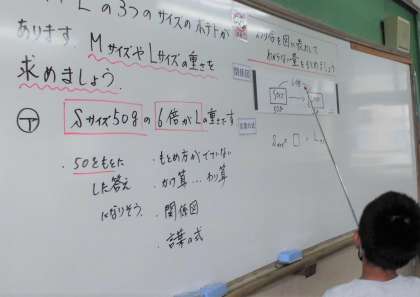 Lの3つのサイズのポテトが
あります。MサイズやLサイズの重さを
求めましょう。
㋐ Sサイズ50gの6倍がLの重さです
・50をもとに
した答え
になりそう。
・もとめ方が
・かけ算…わり算
・関係図
・言葉の式
わからない量をもとめましょう
関係図
6倍
50g
言葉の式